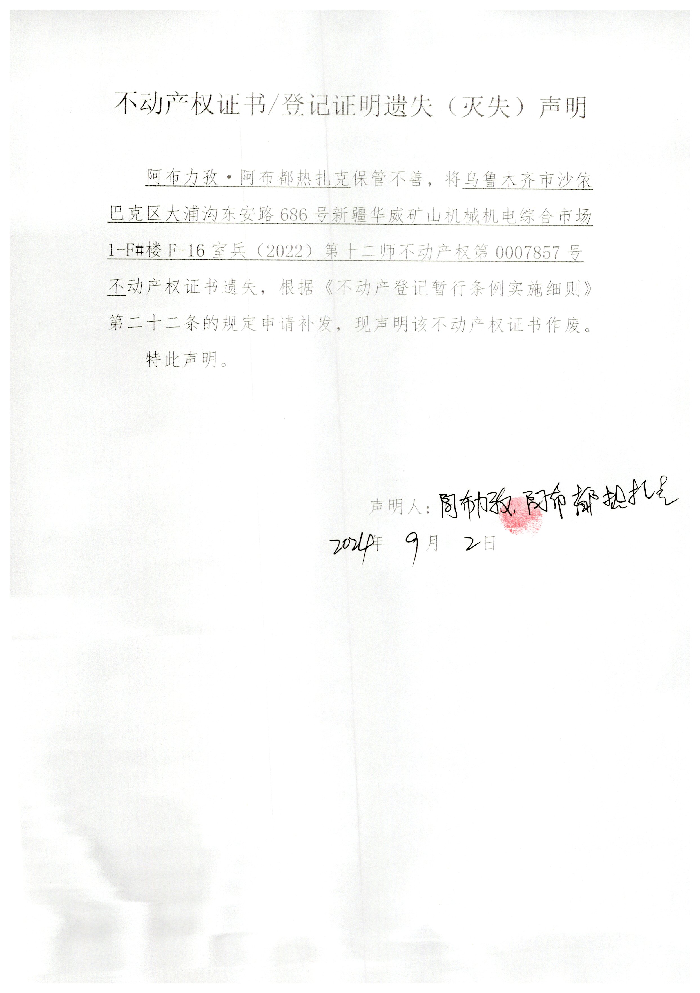 不动产权证书/登记证明遗失（灭失）声明
阿布力孜·阿布都热扎克保管不善，将乌鲁木齐市沙依
巴克区大浦沟东安路686号新疆华威矿山机械机电综合市场
1-F#楼F-16室兵（2022）第十二师不动产权第0007857号
不动产权证书遗失，根据《不动产登记暂行条例实施细则》
第二十二条的规定申请补发，现声明该不动产权证书作废。
特此声明。
声明人：阿布力孜.阿布都热扎克
2024年 9月 2日